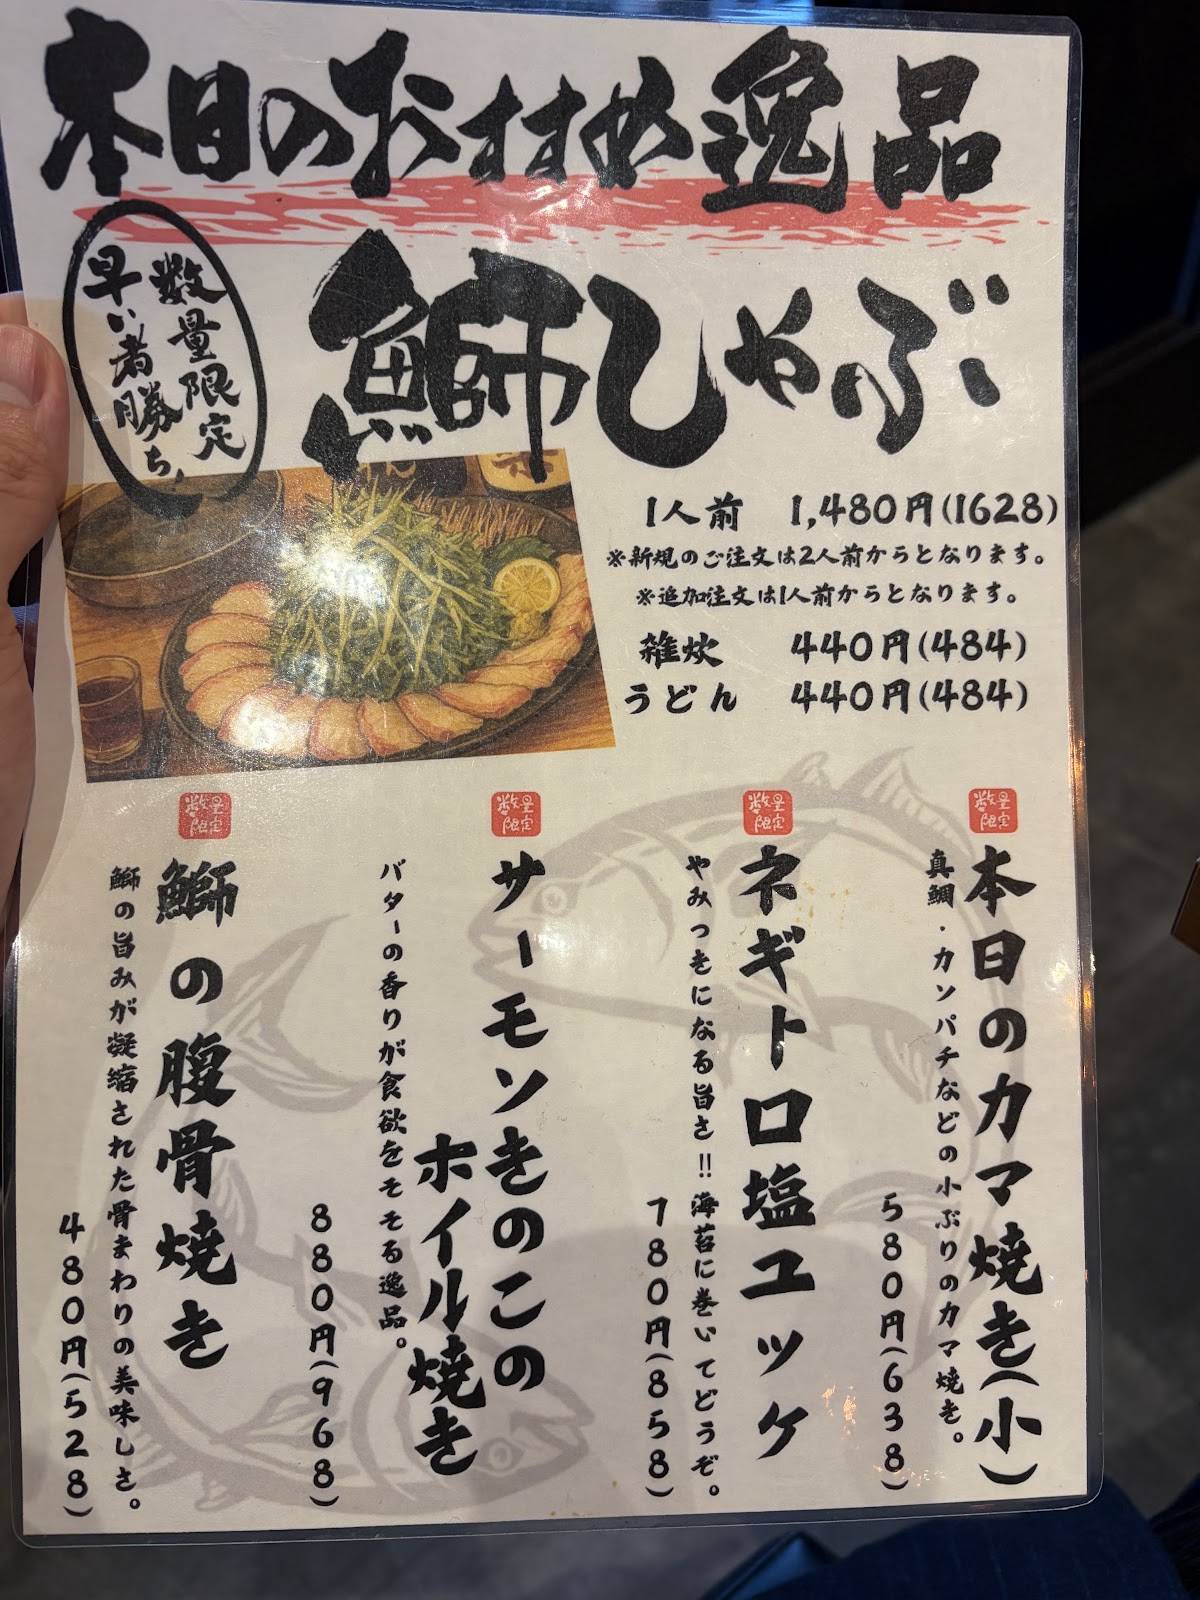 本日のおすすめ逸品
数量限定
早い者勝ち!
鰤しゃぶ
1人前 1,480円(1628)
※新規のご注文は2人前からとなります。
※追加注文は1人前からとなります。
雑炊 440円(484)
うどん 440円(484)
数量限定
本日のカマ焼き(小)
真鯛・カンパチなどの小ぶりのカマ焼き。
580円(638)
数量限定
ネギトロ塩ユッケ
やみつきになる旨さ!!海苔に巻いてどうぞ。
780円(858)
数量限定
サーモンきのこの
ホイル焼き
バターの香りが食欲をそそる逸品。
880円(968)
数量限定
鰤の腹骨焼き
鰤の旨みが凝縮された骨まわりの美味しさ。
480円(528)